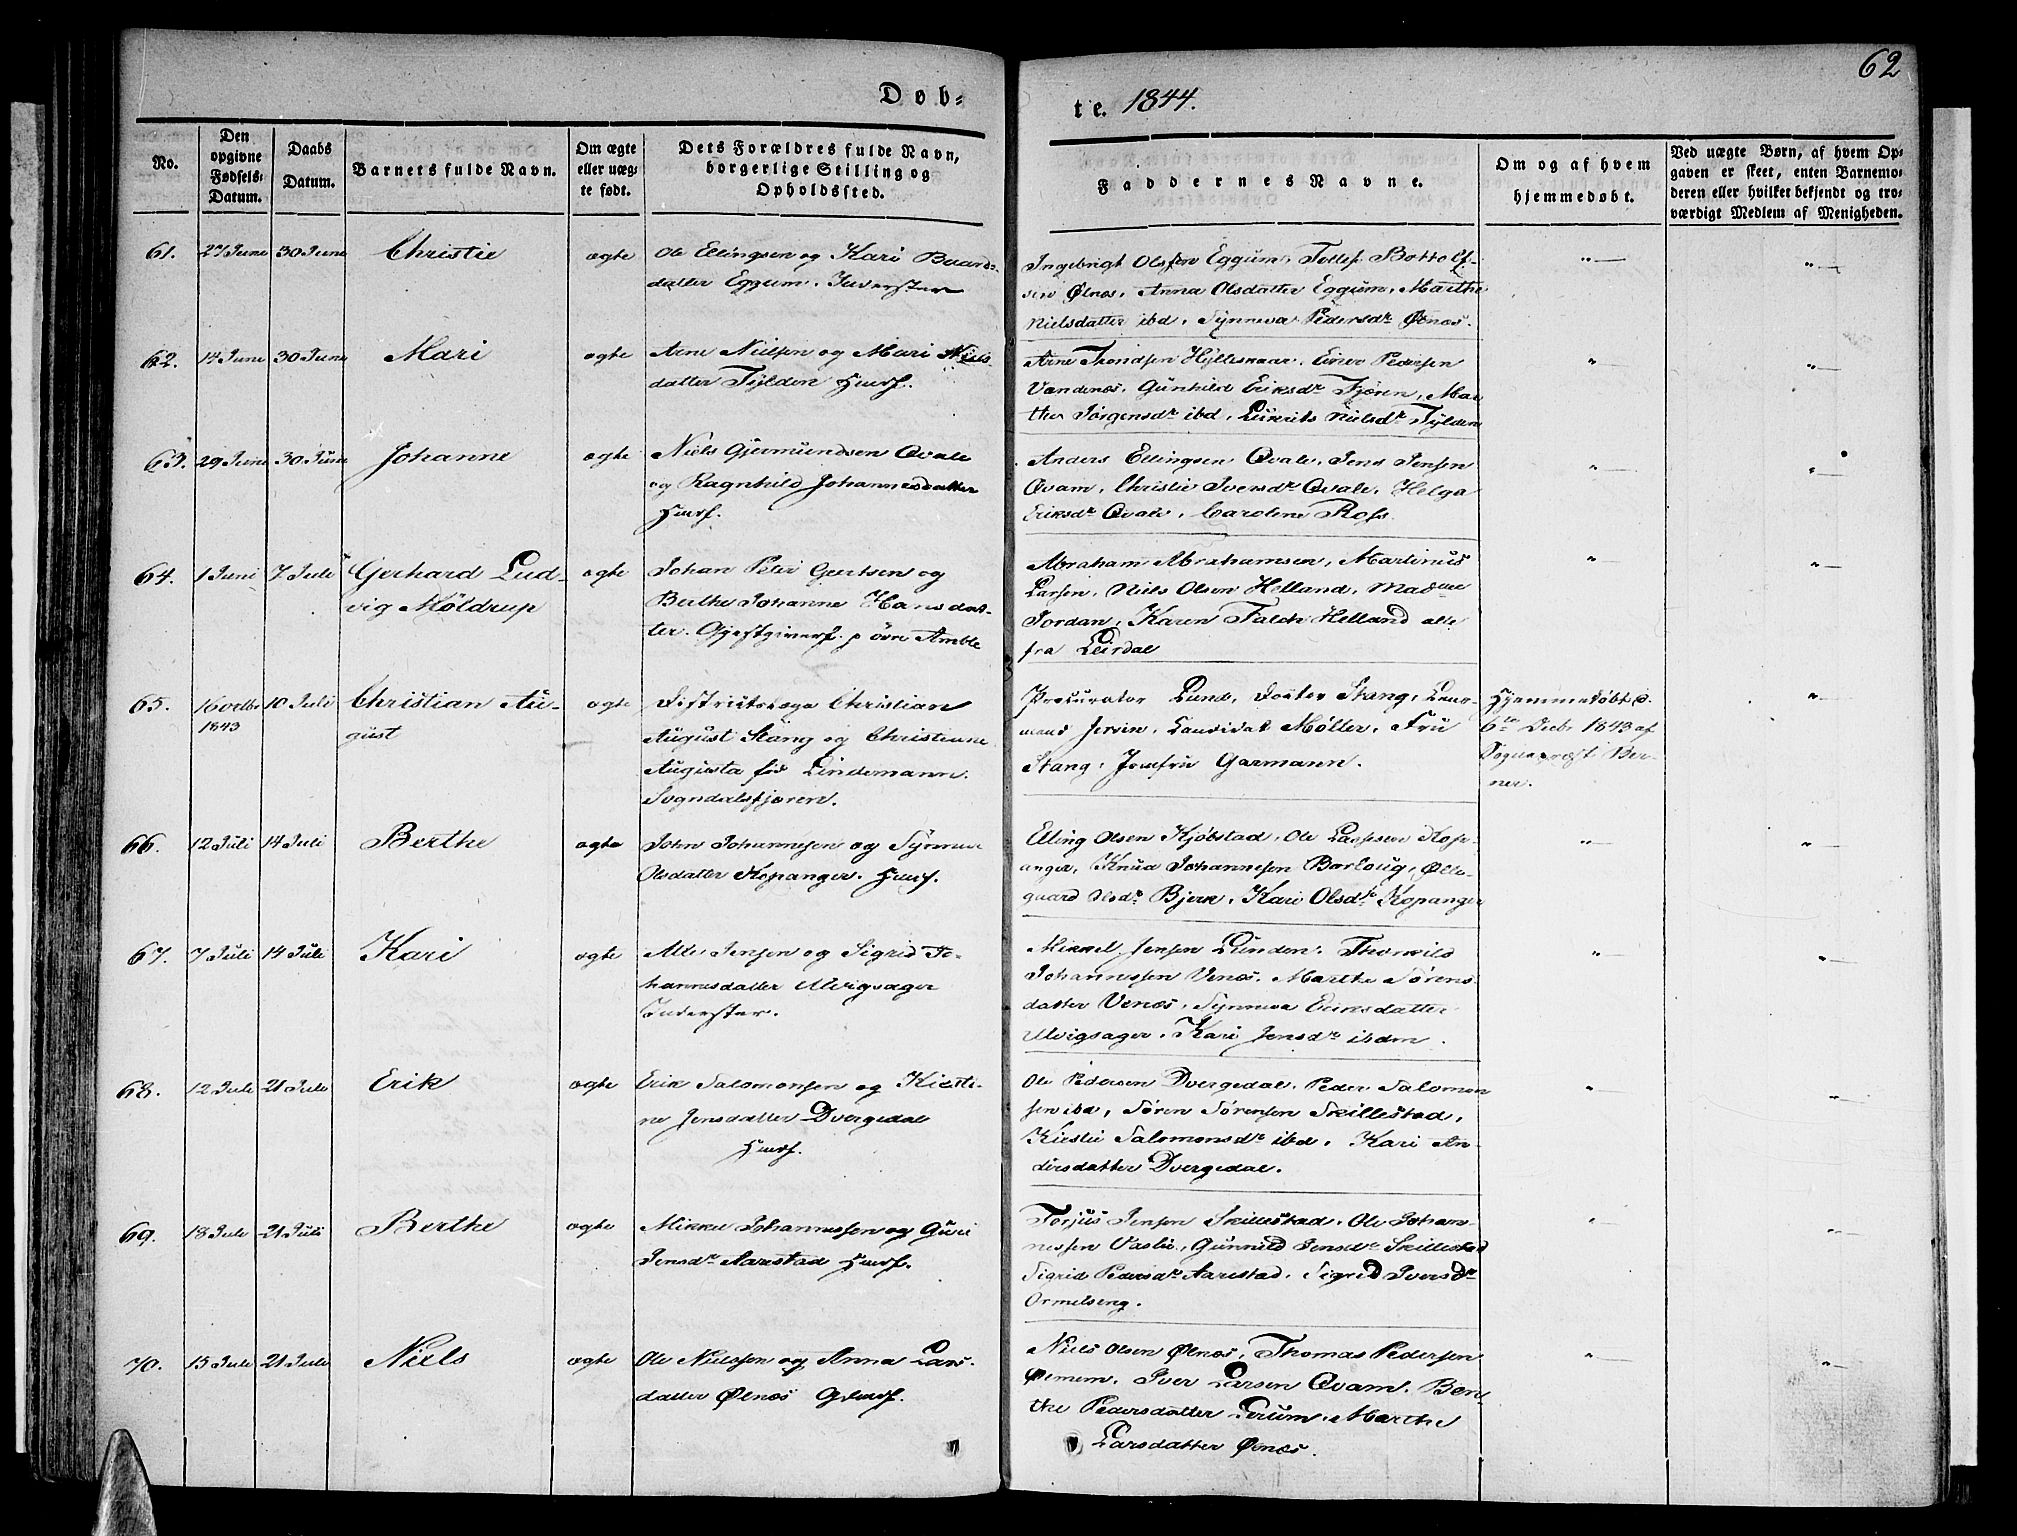 62
Døb=
te. 1844.
No.
Den
opgivne
Fødsels-
Datum.
Daabs
Datum.
Barnets fulde Navn.
Om ægte
eller uæg-
te født.
Dets Forældres fulde Navn,
borgerlige Stilling og
Opholdssted.
Faddernes Navne.
Om og af hvem
hjemmedøbt.
Ved uægte Børn, af hvem Op-
gaven er skeet, enten Barnemo-
deren eller hvilket bekjendt og tro-
værdigt Medlem af Menigheden.
61. 27 Juni 30 Juni Christie ægte
Ole Ellingsen og Kari Baard-
datter Eggum.
Ingebrigt Olsen Eggum, Tollef Bottolf-
sen Ølnæs, Anna Olsdatter Eggum, Marthe
Nielsdatter ibd, Synneva Pedersdr Ølnæs.
62. 14 Juni 30 Juni Mari ægte
Arne Nielsen og Mari Niels
datter Fylden Huusf.
Arne Trondsen Einer Pedersen
Gunhild Eriksdr Fjøren, Mar
the Jørgensdr ibd, Nielsdr Fylden
63. 29 Juni 30 Juni Johanne ægte
Niels Gjermundsen Qvale
og Ragnhild Johannesdatter
Huusf.
Anders Ellingsen Qvale, Jens Jensen
Qvam, Christie Iversdr Qvale, Helga
Eriksdr Qvale, Caroline Ross
64. 1 Juni 7 Juli Gerhard Lud-
vig Møldrup ægte
Johan Peter Geertsen og
Berthe Johanne Hansdat-
ter. Gjestgiverf. p øvre Amble
Abraham Abrahamsen, Martinus
Larsen, Niels Olsen Helland, Madme
Jordan, Karen Falch Helland alle
fra Leirdal
65. 16 octbr
1843 10 Juli Christian Au-
gust ægte
Districtslæge Christian
August Stang og Christiane
Augusta fød Lindemann.
Sogndalsfjøren.
Procurator Lund, Docter Stang, Leut-
nand Candidat Møller, Fru
Stang, Jomfru Garmann.
Hjemmedøbt d.
6te Decbr 1843 af
Sognepræst Ber-
ner.
66. 12 Juli 14 Juli Berthe ægte
John Johannesen og Synneva
Olsdatter Kopanger. Huusf.
Elling Olsen Kjøbstad, Ole Larssen Kop-
anger, Knud Johannesen Barlaug, Olle-
gaard Olsdr Bjerk, Kari Olsdtr Kopanger
67. 7 Juli 14 Juli Kari ægte
Atle Jensen og Sigrid Jo-
hannesdatter Ulvigsager
Mikkel Jensen Lunden, Thorkild
Johannessen Venæs, Marthe Sørens
datter Venæs, Synneva Eriksdatter
Ulvigsager, Kari Jensdr ibdm.
68. 12 Juli 21 Juli Erik ægte
Erik Salomonsen og Kiersti-
ne Jensdatter Dvergedal
Huusf.
Ole Pedersen Dvergedal, Peder Salomon
sen ibd, Søren Sørensen Skillestad,
Kirstie Salomonsdr ibd, Kari An-
dersdatter Dvergedal.
69. 18 Juli 21 Juli Berthe ægte
Mikkel Johannessen og Guri
Jensdr Aarestad Huusf.
Torjus Jensen Skillestad, Ole Johan-
nessen Vaslie, Gunnild Jensdr Skillestad
Sigrid Pedersdr Aarestad, Sigrid Iversdr
Ormelseng.
70. 15 Juli 21 Juli Niels ægte
Ole Nielssen og Anna Lars-
datter Ølnæs Huusf.
Niels Olsen Ølnæs, Thomas Pedersen
Iver Larsen Qvam, Ber
the Pedersdatter Lerum, Marthe
Larsdatter Ølnæs.